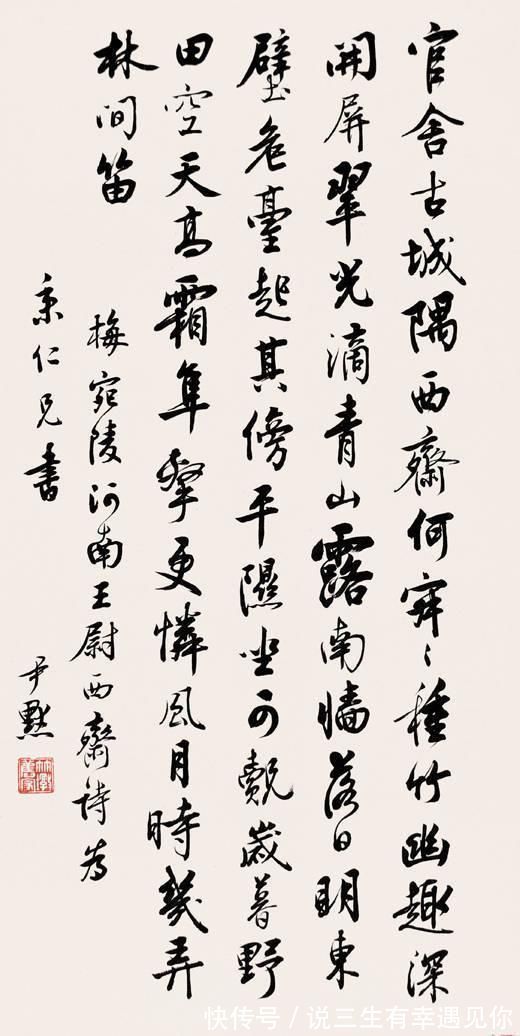 官舍古城隅西齋何寂〻種竹幽趣深
開屏翠光滴青山露南牆落日明東
壁危臺起其傍平隰坐可覿歲暮野
田空天高霜隼擊更憐風月時幾弄
林間笛
梅宛陵河南王尉西齋詩為
秉仁兄書
尹默
快传号/说三生有幸遇见你